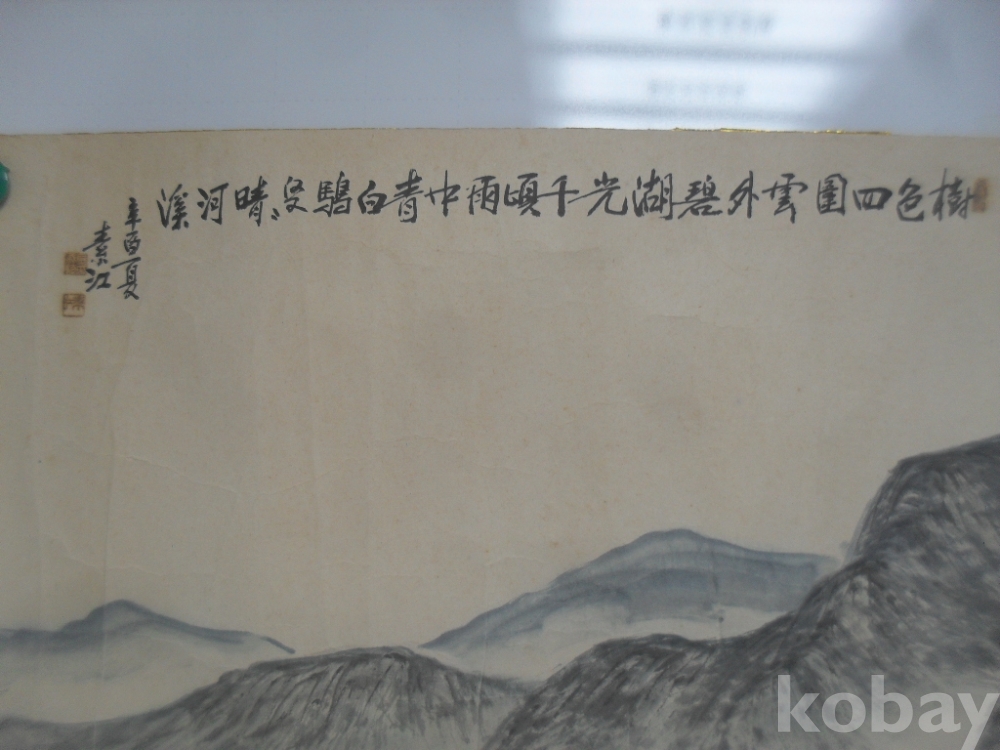 樹色四圍雲外碧湖光千頃雨中青白鷗晴河溪
辛酉夏
素江
kobay